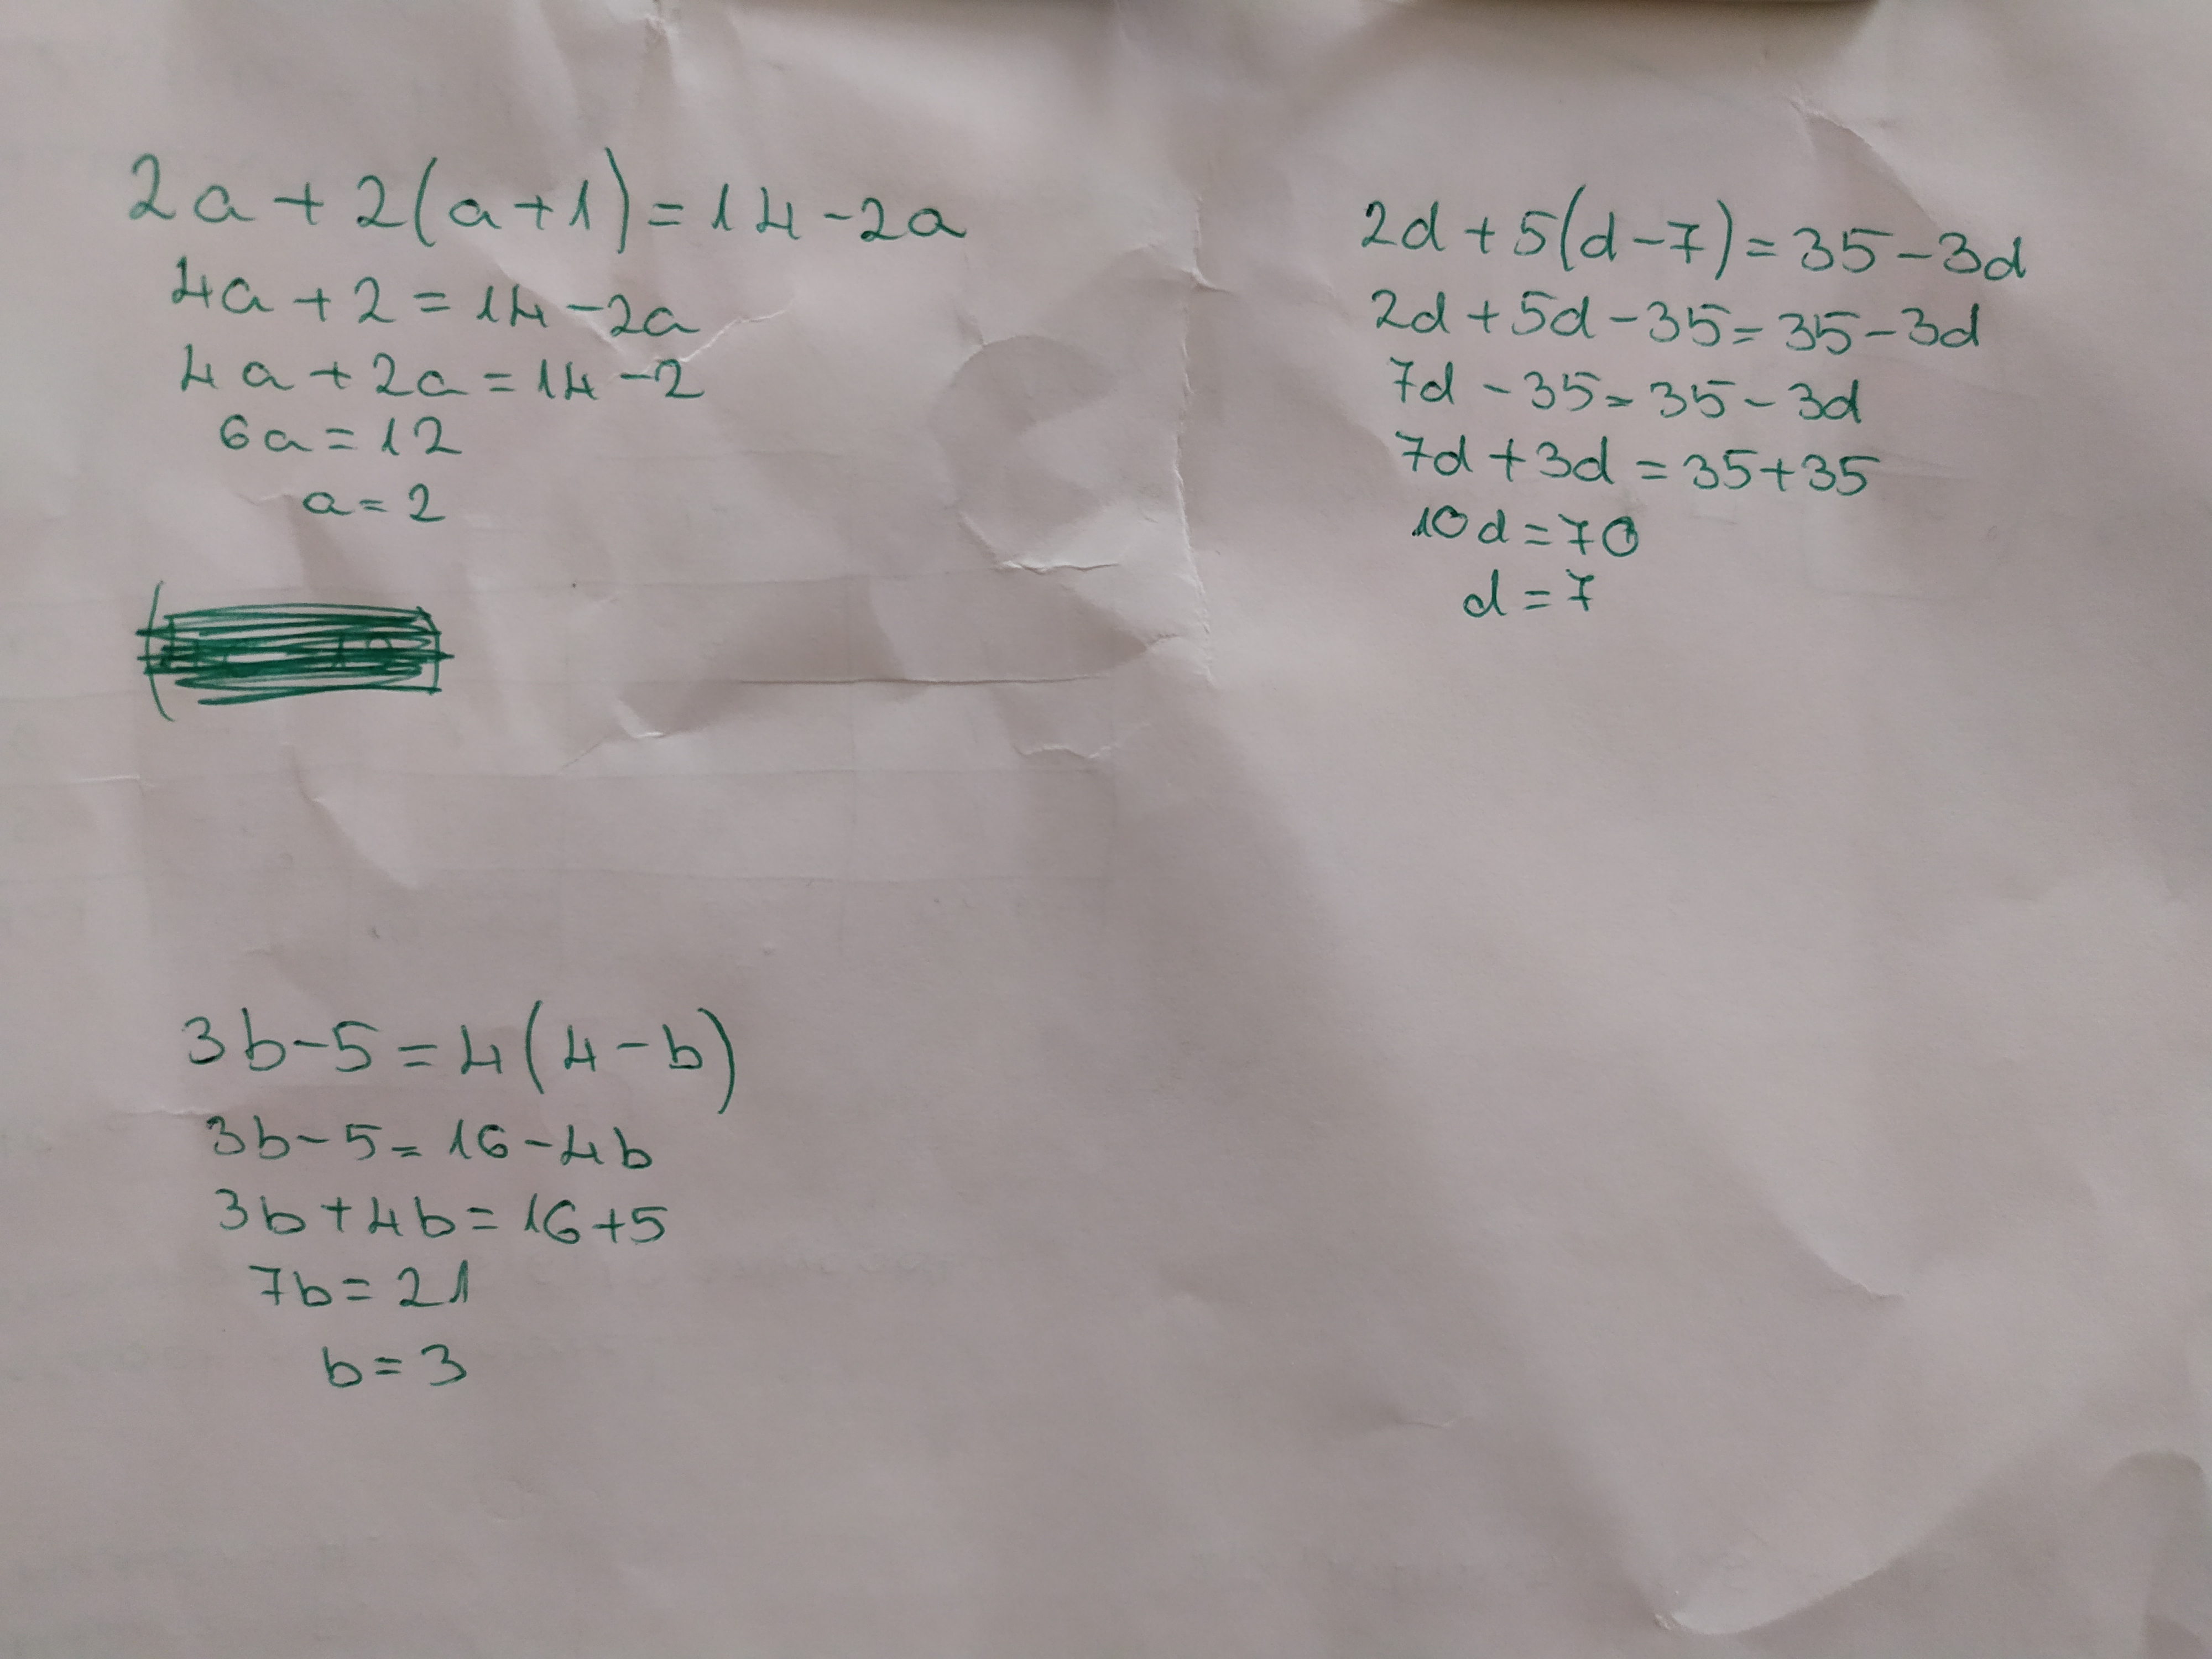 2a+2(a+1)=14-2a
4a+2=14-2a
4a+2a=14-2
6a=12
a=2
3b-5=4(4-b)
3b-5=16-4b
3b+4b=16+5
7b=21
b=3
2d+5(d-7)=35-3d
2d+5d-35=35-3d
7d-35=35-3d
7d+3d=35+35
10d=70
d=7